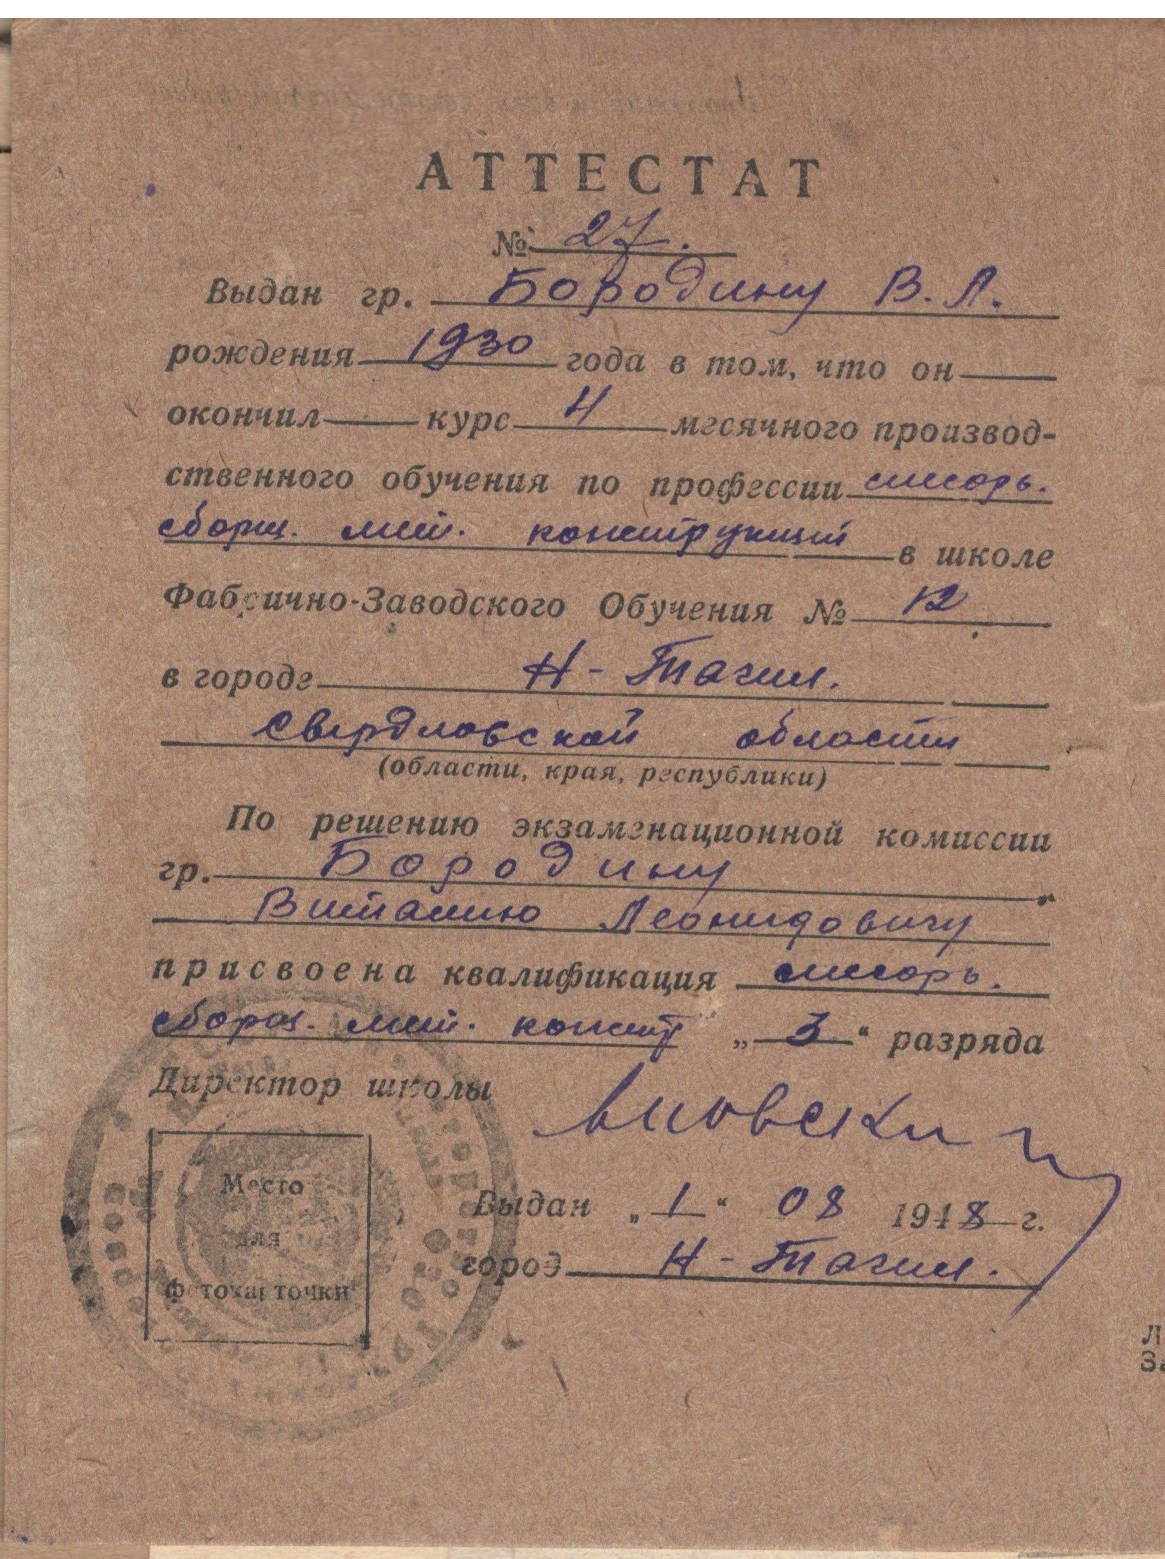 АТТЕСТАТ
№ 27.
Выдан гр. Бородину В. Л.
рождения 1930 года в том, что он
окончил курс 4 месячного производ-
ственного обучения по профессии слесарь.
сборщ. мет. конструкций в школе
Фабрично-Заводского Обучения № 12
в городе Н-Тагил.
Свердловской области
(области, края, республики)
По решению экзаменационной комиссии
гр. Бородину
Виталию Леонидовичу
присвоена квалификация слесарь.
сборщ. мет. констр „3“ разряда
Директор школы
Место
для
фотокарточки
Выдан „1“ 08 1948 г.
город Н-Тагил.